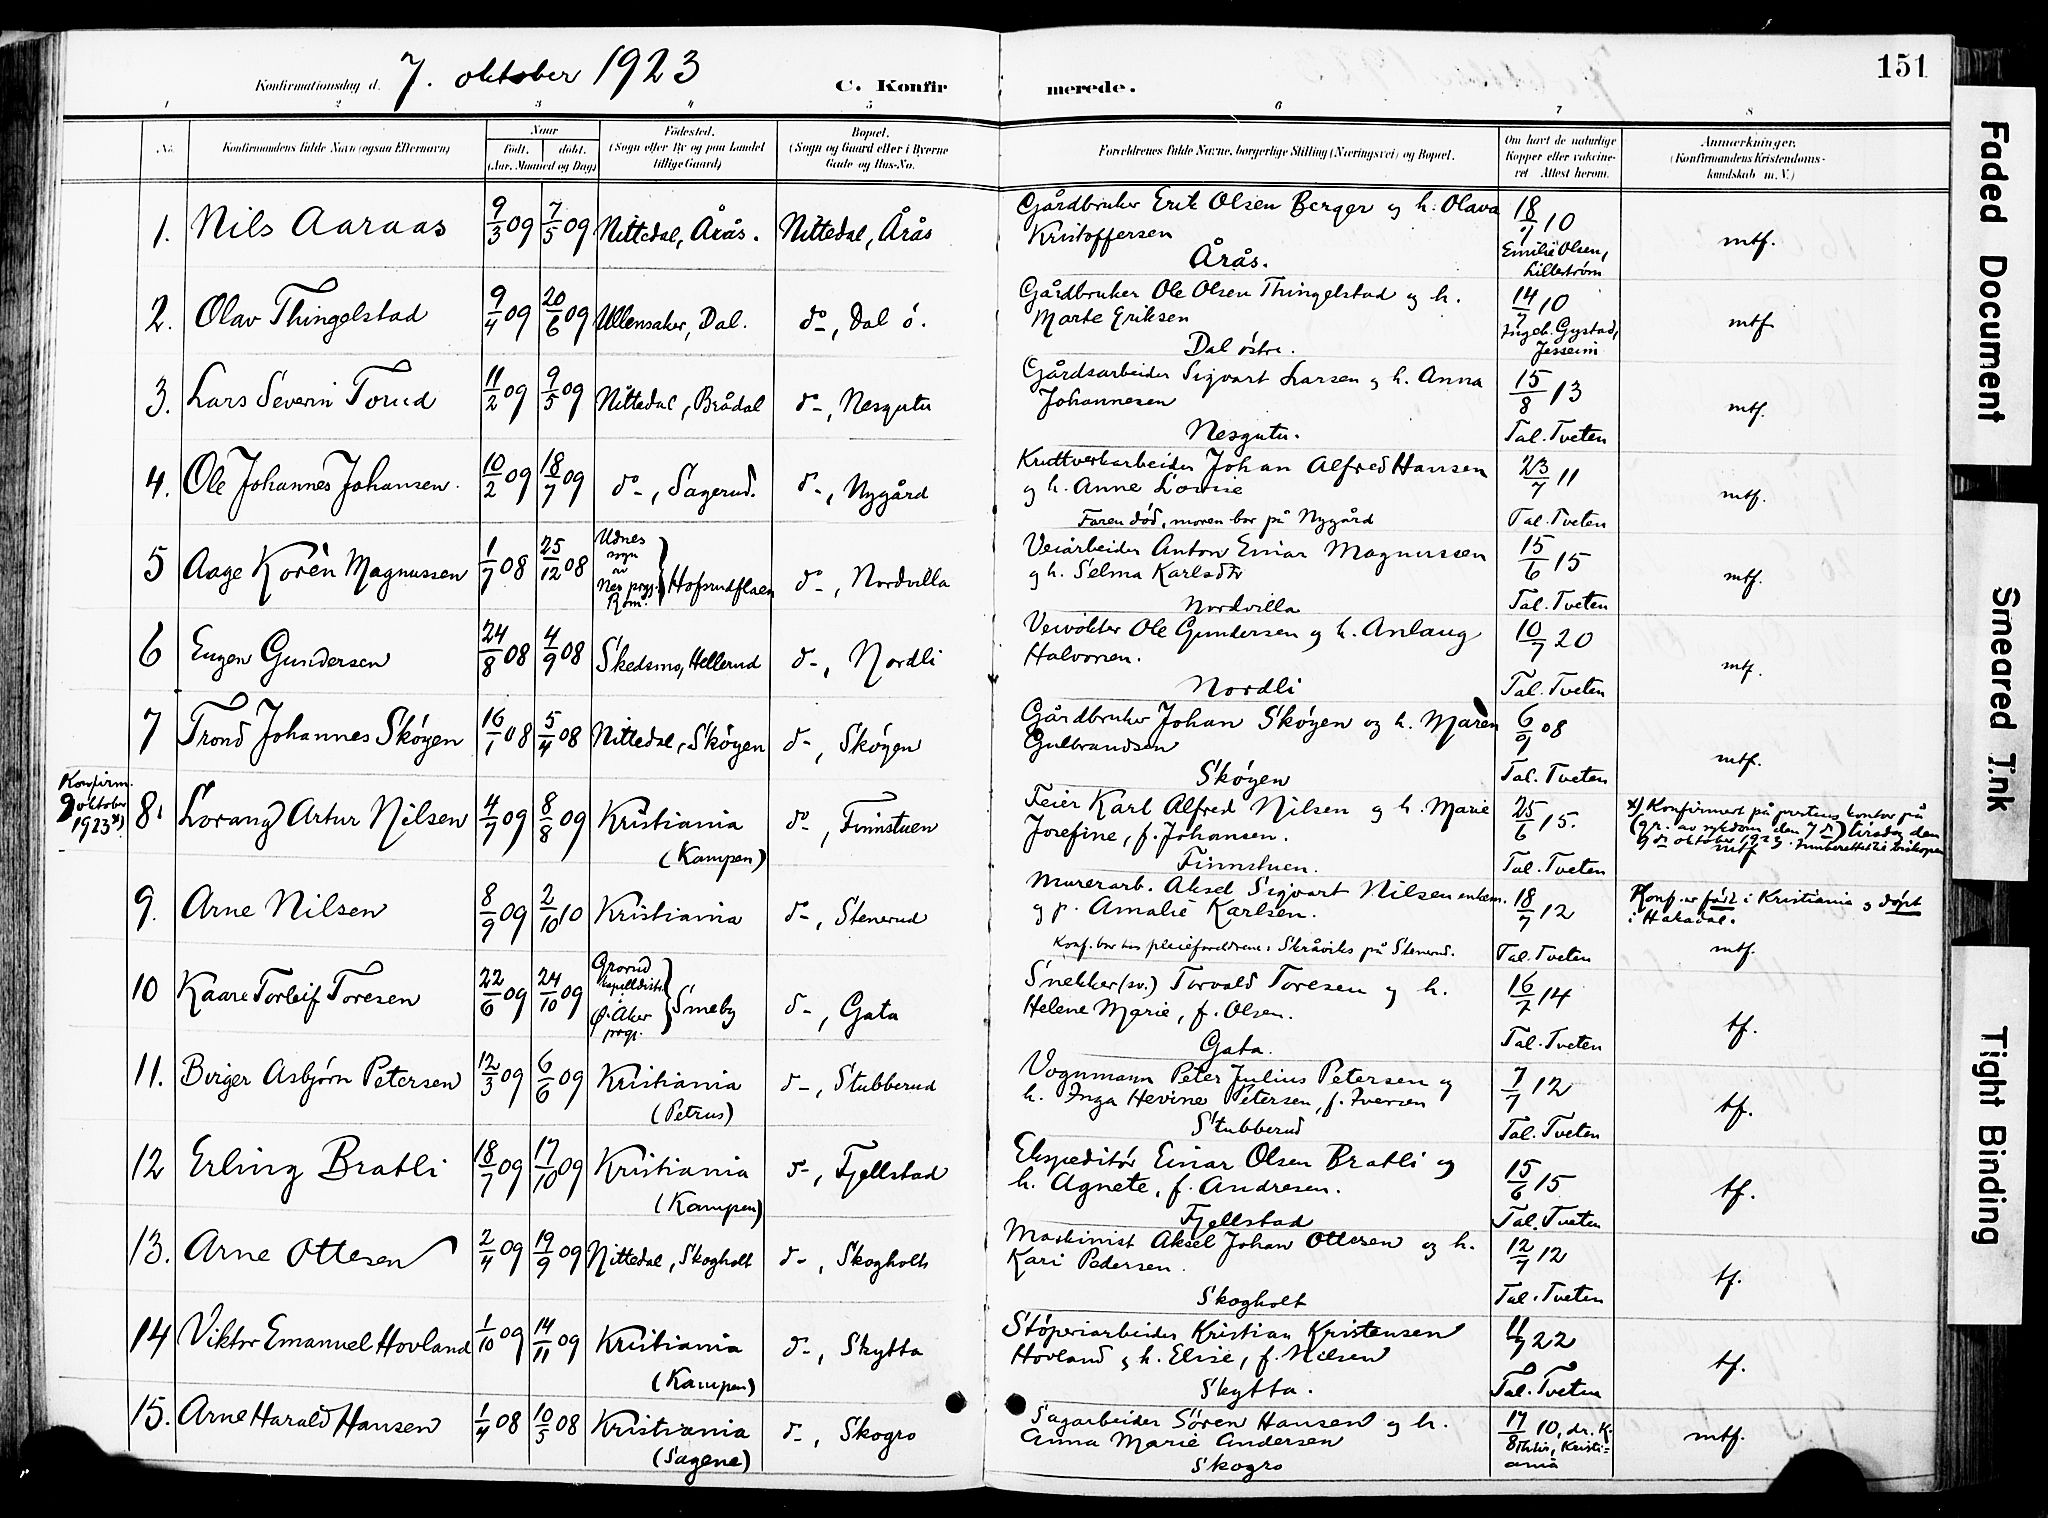 151
Konfirmationsdag d. 7. oktober 1923 C. Konfirmerede.
1 2 3 4 5 6 7 8
No. Konfirmandens fulde Navn (ogsaa Efternavn) Naar født. døbt. (Aar, Maaned og Dag) Fødested. (Sogn eller By og paa Landet tillige Gaard) Bopæl. (Sogn og Gaard eller i Byerne Gade og Hus-No. Forældrenes fulde Navne, borgerlige Stilling (Næringsvei) og Bopæl. Om havt de naturlige Kopper eller vaccineret Attest herom. Anmærkninger. (Konfirmandens Kristendomskundskab m. V.)
1. Nils Aaraas 9/3 09 7/5 09 Nittedal, Årås. Nittedal, Årås Gårdbruker Erik Olsen Berger og h. Olava 18/9 10 mtf.
Kristoffersen Emilie Olsen,
Årås. Lillestrøm
2. Olav Thingelstad 9/4 09 20/6 09 Ullensaker, Dal. do-, Dal ö. Gårdbruker Ole Olsen Thingelstad og h. 14/7 10 mtf
Marte Eriksen Ingeb. Gystad,
Dal östre. Jesseim
3. Lars Severin Torud 11/2 09 9/5 09 Nittedal, Brådal do-, Nesgutu Gårdsarbeider Sigvart Larsen og h. Anna 15/8 13 mtf.
Johannesen
Nesgutu. Tal. Tveten
4. Ole Johannes Johansen. 10/2 09 18/7 09 do-, Sagerud. do-, Nygård Kruttverkarbeider Johan Alfred Hansen 23/7 11 mtf.
og h. Anne Lovise
Faren död, moren bor på Nygård Tal. Tveten
5 Aage Korèn Magnussen 1/7 08 25/12 08 Udnes sogn av Nes prgj. Rom. } Hofsrudflaen do-, Nordvilla Veiarbeider Anton Einar Magnussen 15/6 15 mtf.
og h. Selma Karlsdtr
Nordvilla Tal. Tveten
6 Eugen Gundersen 24/8 08 4/9 08 Skedsmo, Hellerud do-, Nordli Veivokter Ole Gundersen og h. Anlaug 10/7 20 mtf.
Halvorsen.
Nordli Tal. Tveten
7 Trond Johannes Sköyen 16/1 08 5/4 08 Nittedal, Sköyen do-, Sköyen Gårdbruker Johan Sköyen og h. Maren 6/9 08 mtf.
Gulbrandsen
Sköyen Tal. Tveten
Konfirm. 9 oktober 1923 x)
8. Lorang Artur Nilsen 4/7 09 8/8 09 Kristiania (Kampen) do-, Finnstuen Feier Karl Alfred Nilsen og h. Marie 25/6 15. x) Konfirmert på prestens kontor på
Josefine, f. Johansen. (gr. av sykdom den 7 de) tirsdag den
Finnstuen. Tal. Tveten 9 de oktober 1923. Innberettet til biskopen
mtf
9. Arne Nilsen 8/9 09 2/10 10 Kristiania do-, Stenerud Murerarb. Aksel Sigvart Nilsen enkem. 18/7 12 Konf. er född i Kristiania og döpt
og p. Amalie Karlsen. i Hakadal.
Konf. bor hos pleieforeldrene: Skråviks på Stenerud. Tal. Tveten mtf.
10 Kaare Torleif Toresen 22/6 09 24/10 09 Grorud kapelldistr. i Ø. Aker prgj. } Smeby do-, Gata Snekker (sv.) Torvald Toresen og h. 16/7 14 tf.
Helene Marie, f. Olsen.
Gata. Tal. Tveten
11. Birger Asbjørn Petersen 12/3 09 6/6 09 Kristiania (Petrus) do-, Stubberud Vognmann Peter Julius Petersen og 7/7 12 tf.
h. Inga Hevine Petersen, f. Iversen
Stubberud Tal. Tveten
12 Erling Bratli 18/7 09 17/10 09 Kristiania (Kampen) do-, Fjellstad Ekspeditör Einar Olsen Bratli og 15/6 15 tf.
h. Agnete, f. Andresen.
Fjellstad Tal. Tveten
13. Arne Ottesen 2/4 09 19/9 09 Nittedal, Skogholt do-, Skogholt Maskinist Aksel Johan Ottesen og h. 12/7 12 tf.
Kari Pedersen.
Skogholt Tal. Tveten
14 Viktor Emanuel Hovland 1/10 09 14/11 09 Kristiania (Kampen) do-, Skytta Stöperiarbeider Kristian Kristensen 11/7 22 tf.
Hovland og h. Elise, f. Nilsen
Skytta. Tal. Tveten
15. Arne Harald Hansen 1/4 08 10/5 08 Kristiania (Sagene) do-, Skogro Sagarbeider Sören Hansen og h. 17/8 10, dr. K. mtf.
Anna Marie Andersen Kristiania
Skogro
Faded Document
Smeared Ink
Tight Binding